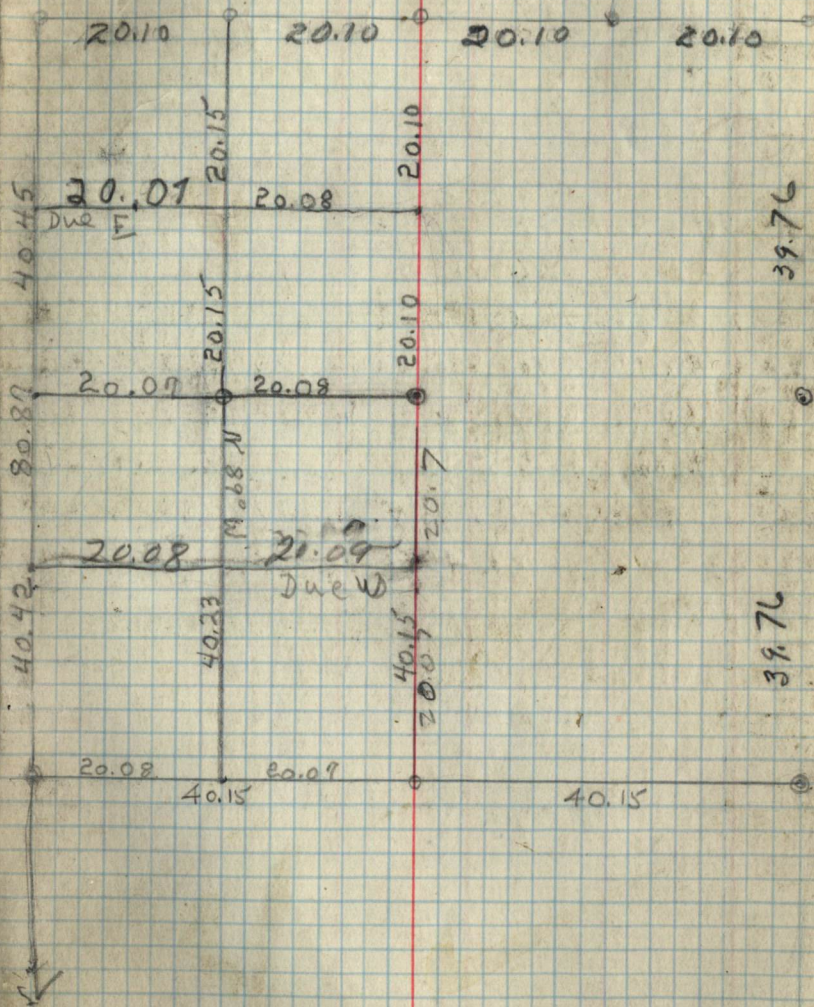 20.10 20.10 20.10 20.10
20.15
20.10
40.45
20.01 20.08
Due E
39.76
20.15
20.10
20.07 20.08
80.87
20.7
20.08 20.09
Due W
40.42
40.23
40.15
20.07
39.76
20.08 20.07
40.15 40.15